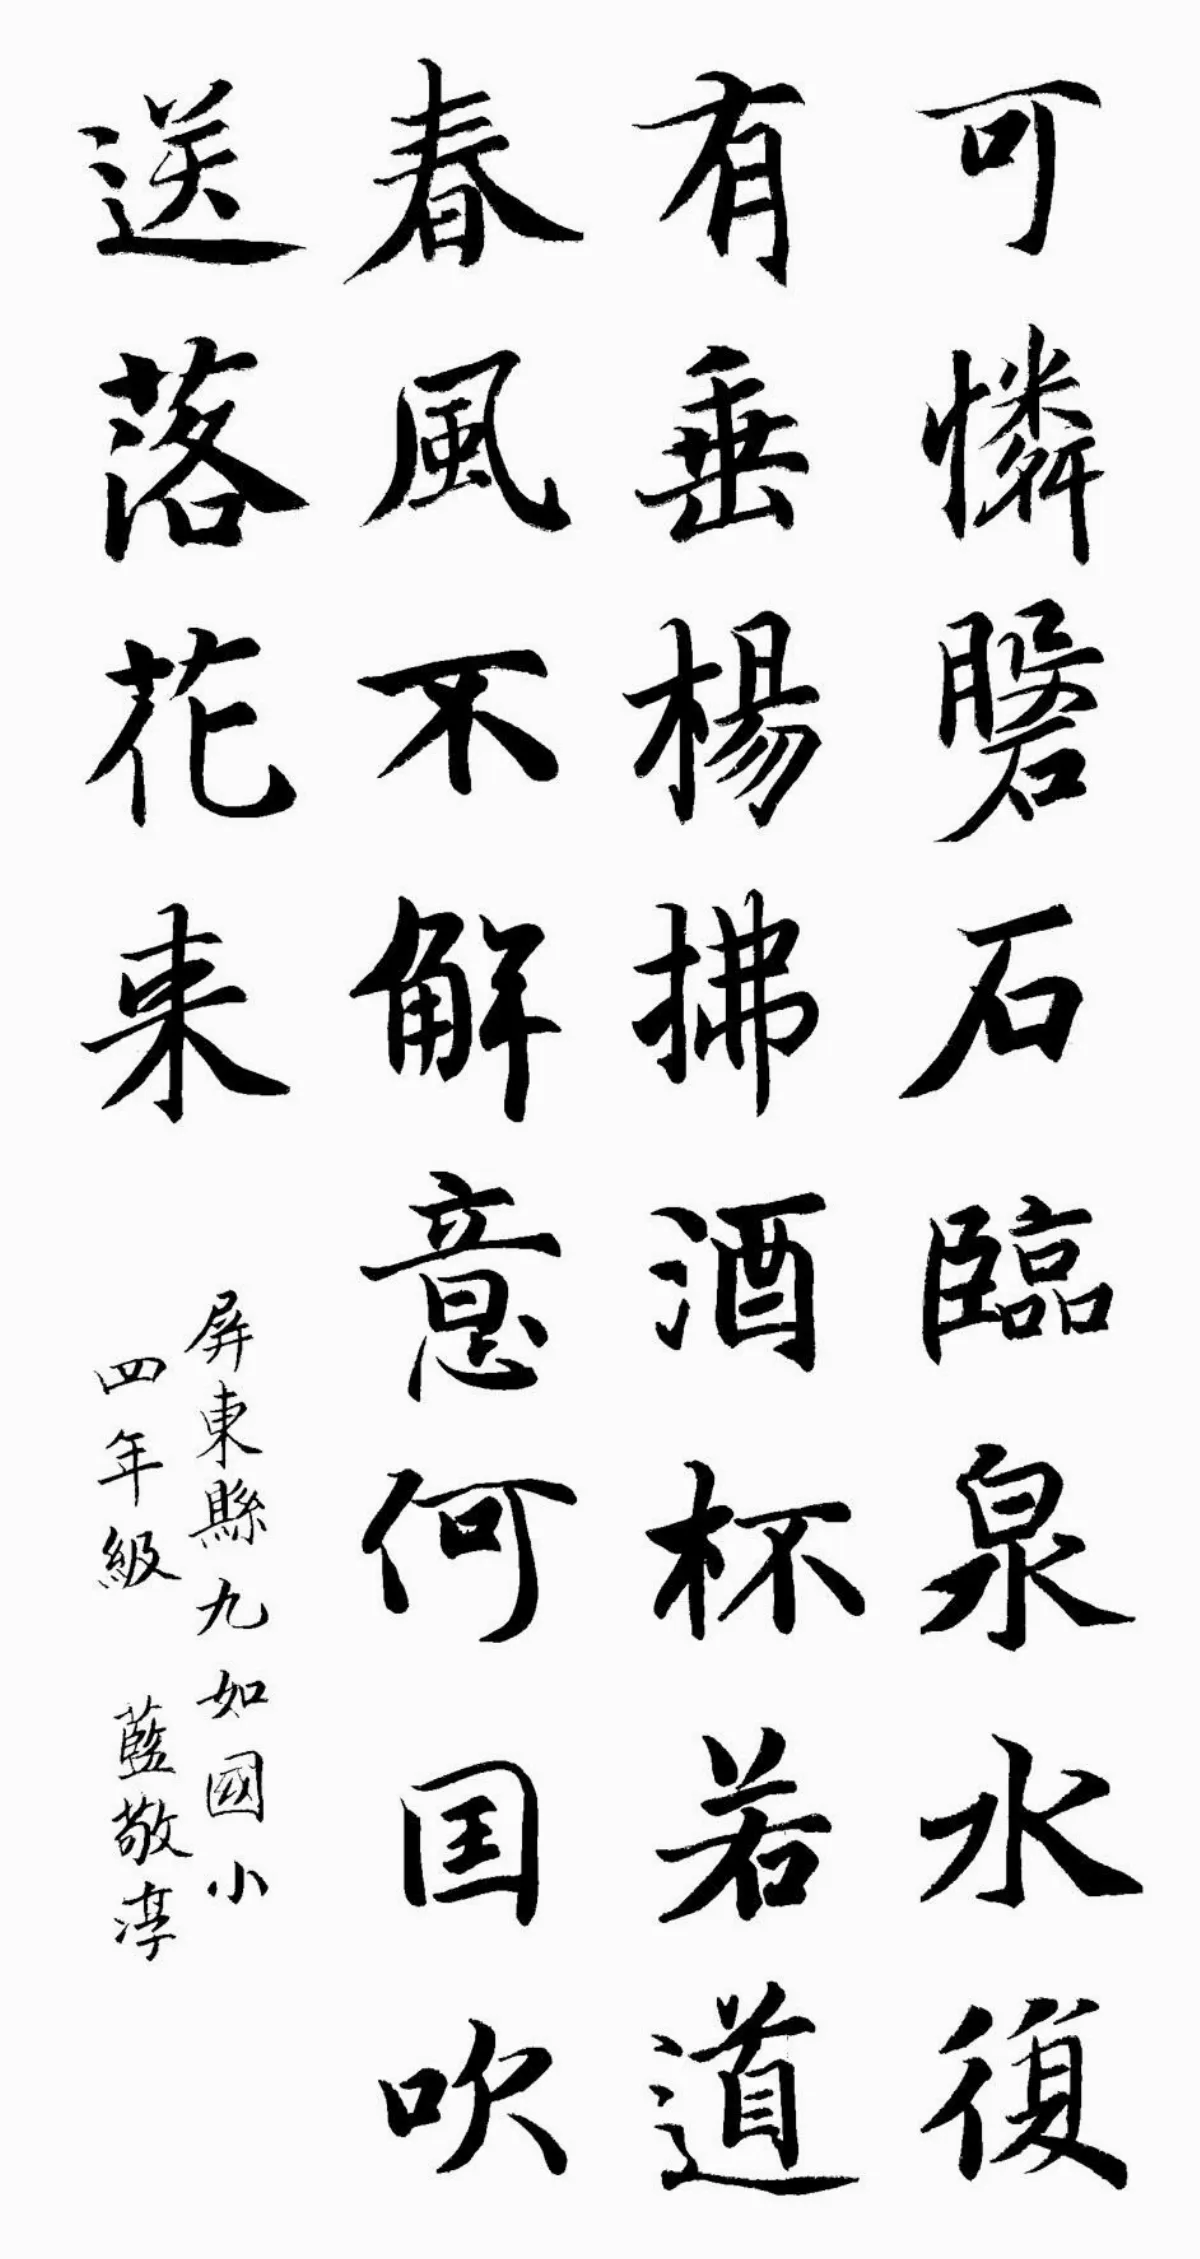 可憐磐石臨泉水復
有垂楊拂酒杯若道
春風不解意何因吹
送落花來
屏東縣九如國小
四年級 藍敬淳